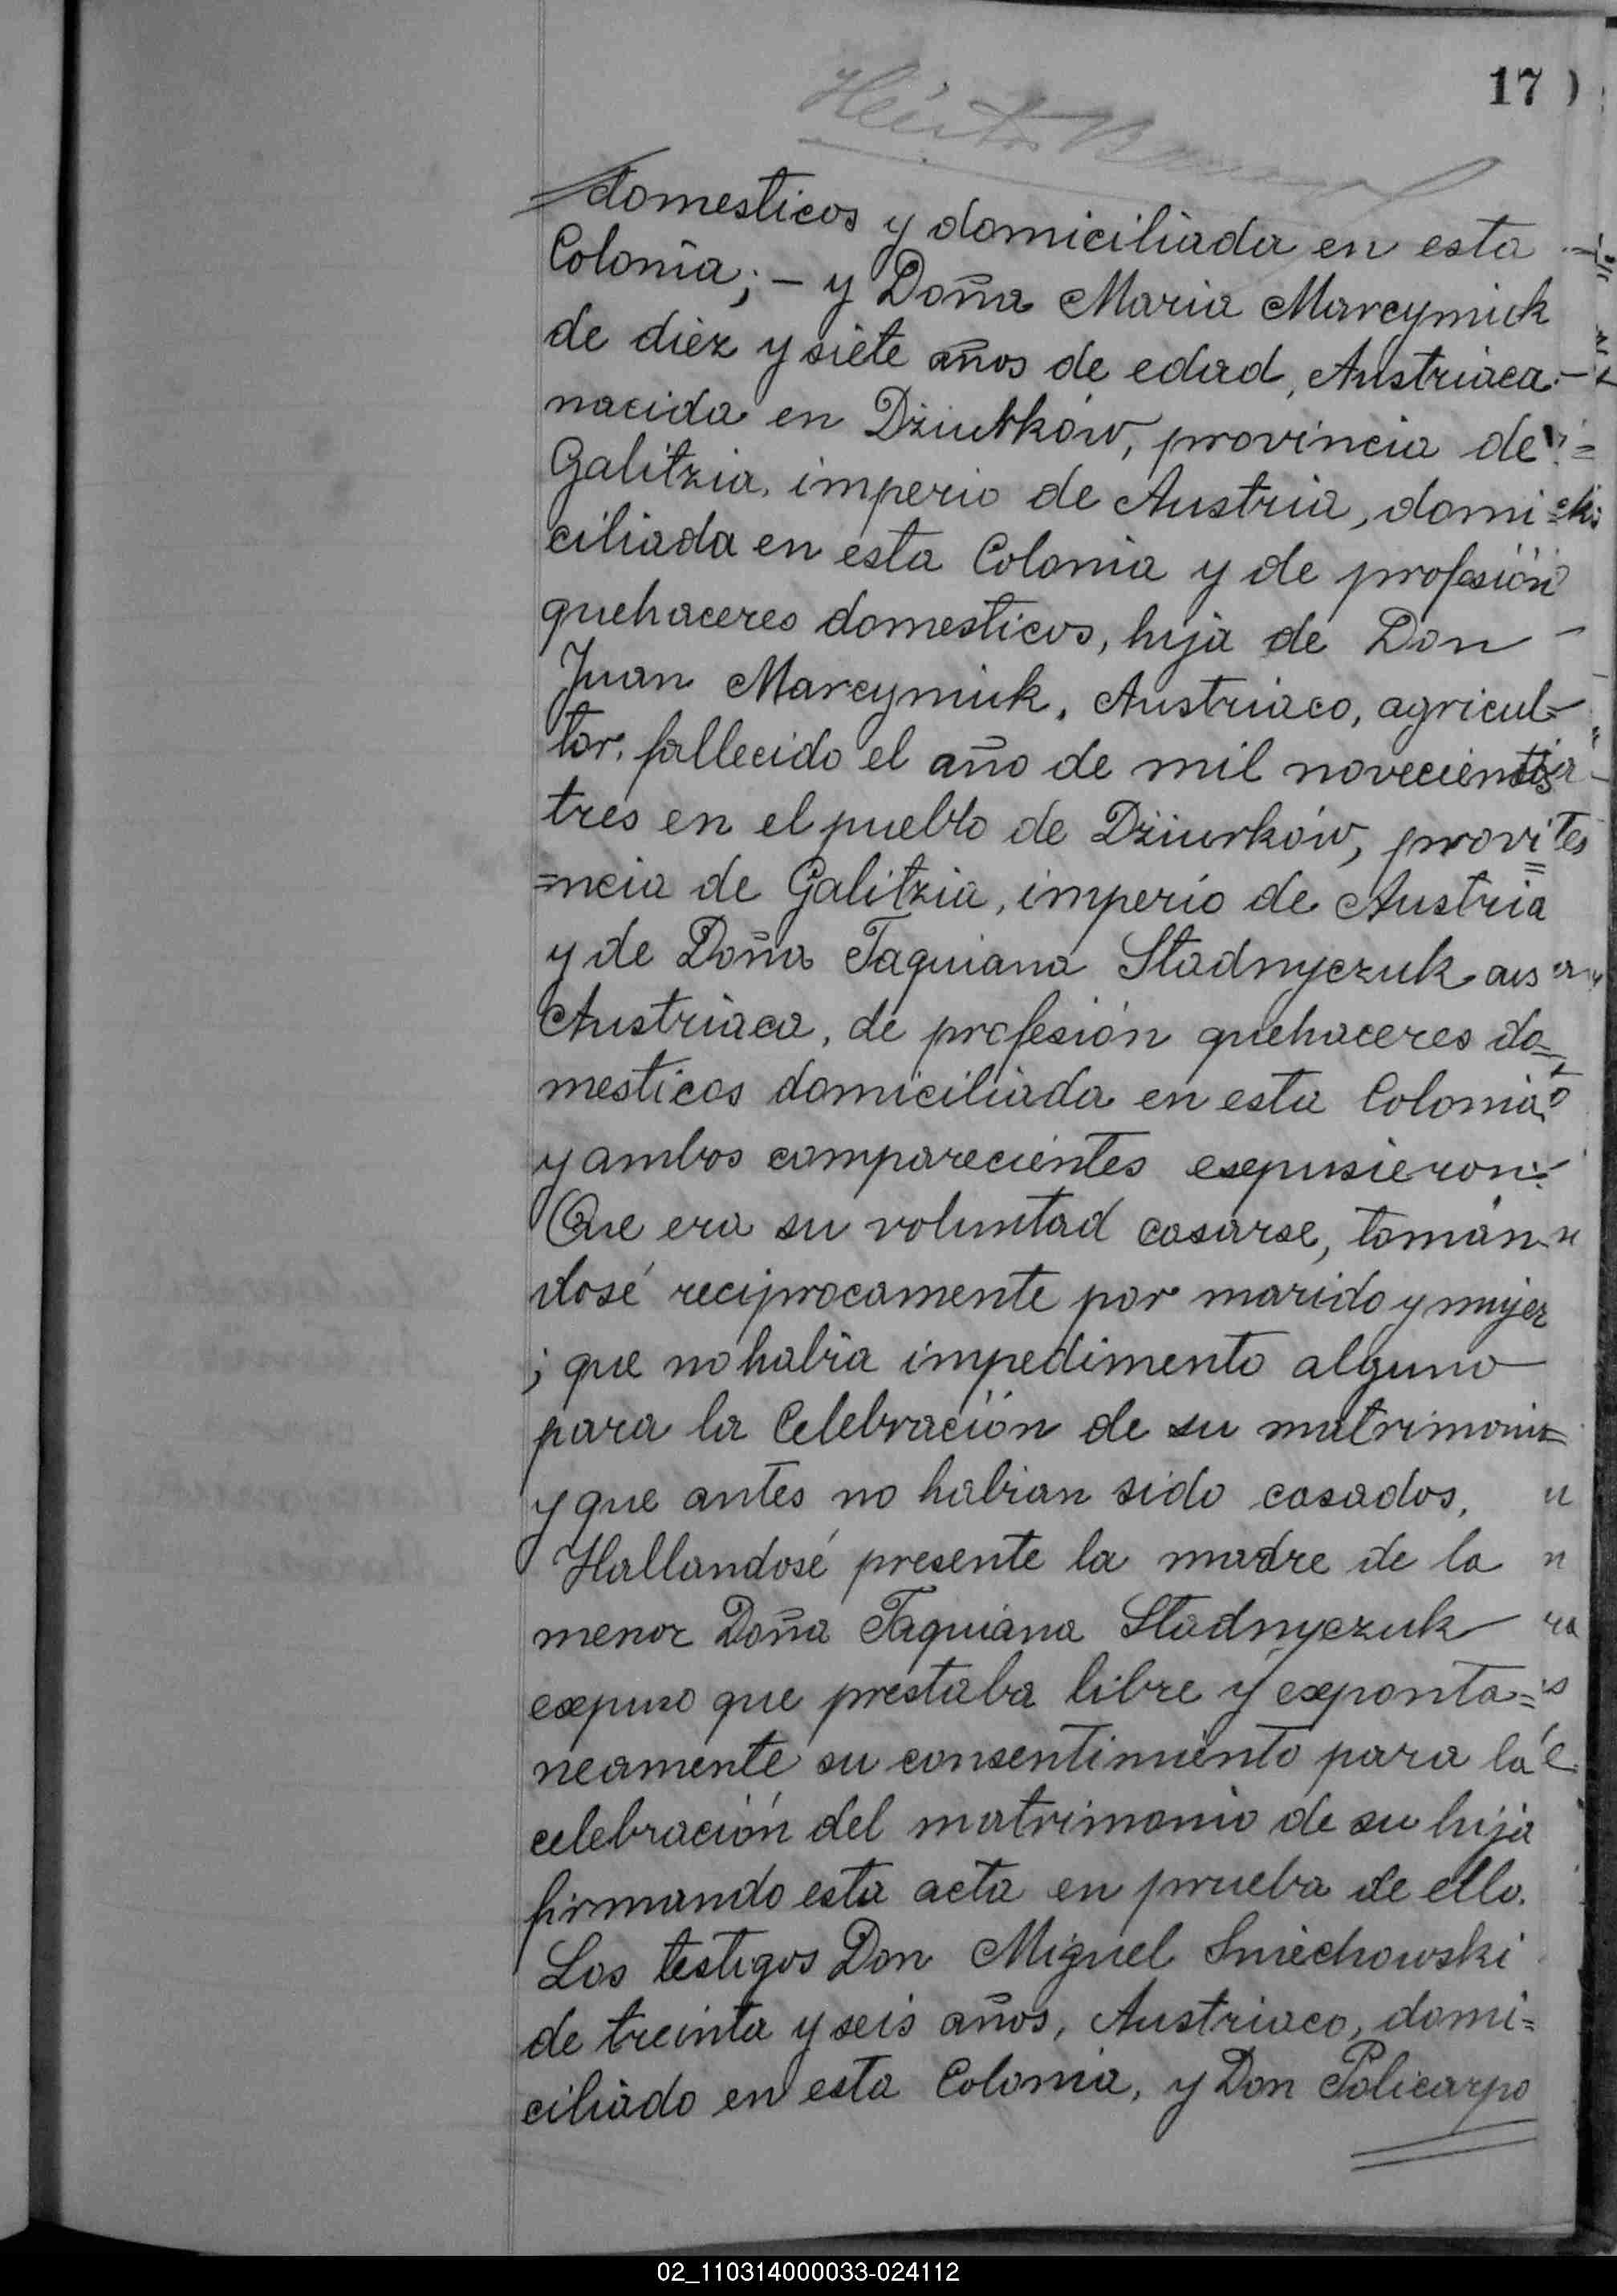 17
domesticos y domiciliada en esta
Colonia; - y Doña Maria Marcyniuk
de diéz y siete años de edad, Austriaca -
nacida en Dziurków, provincia de
Galitzia, imperio de Austria, domi=
ciliada en esta Colonia y de profesión
quehaceres domesticos, hija de Don -
Juan Marcyniuk, Austriaco, agricul=
tor, fallecido el año de mil novecientos
tres en el pueblo de Dziurków, provi=
=ncia de Galitzia, imperio de Austria
y de Doña Taquiana Stadnyczuk aus
Austriaca, de profesión quehaceres do=
mesticos domiciliada en esta Colonia
y ambos comparecientes expusieron:
Que era su voluntad casarse, toman
dosé reciprocamente por marido y mujer
; que no habia impedimento alguno
para la Celebración de su matrimonio=
y que antes no habian sido casados.
Hallandosé presente la madre de la
menor Doña Taquiana Stadnyczuk
expuso que prestaba libre y exponta=
neamente su consentimiento para la
celebración del matrimonio de su hija
firmando esta acta en prueba de ello.
Los testigos Don Miguel Sniechowski
de treinta y seis años, Austriaco, domi=
ciliado en esta Colonia, y Don Policarpo
02_110314000033-024112